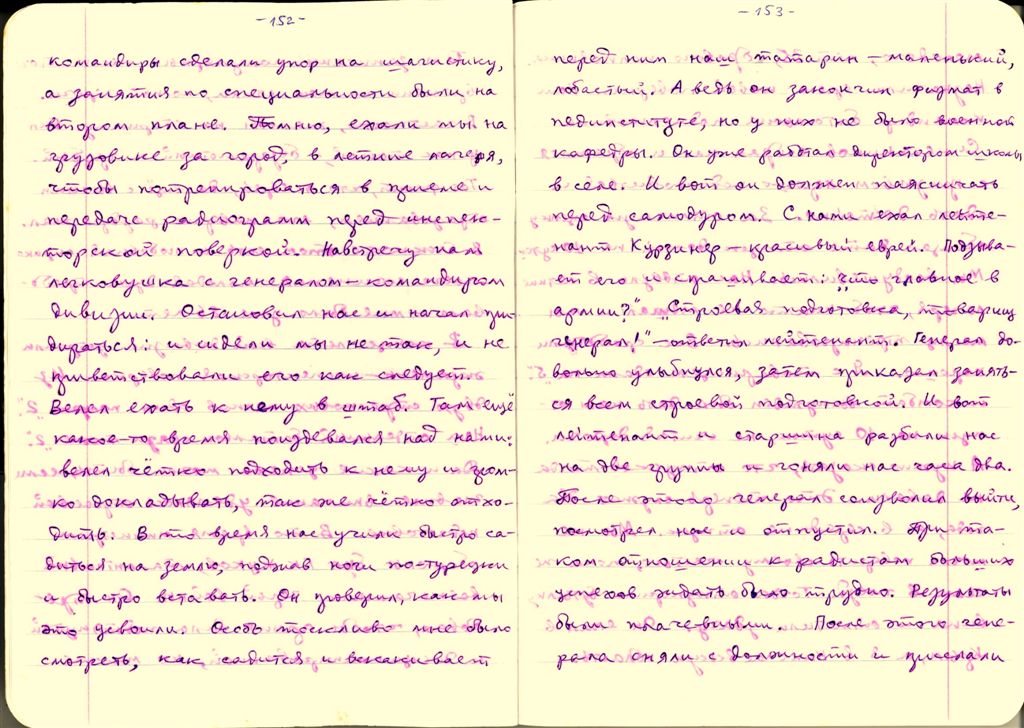 -152-
командиры сделали упор на шагистику,
а занятия по специальности были на
втором плане. Помню, ехали мы на
грузовике за город, в летние лагеря,
чтобы потренироваться в приеме и
передаче радиограмм перед инспек-
торской поверкой. Навстречу нам
легковушка с генералом – командиром
дивизии. Остановил нас и начал при-
дираться: и сидели мы не так, и не
приветствовали его как следует.
Велел ехать к нему в штаб. Там ещё
какое-то время поиздевался над нами:
велел чётко подходить к нему и гром-
ко докладывать, так же чётко отхо-
дить. В то время нас учили быстро са-
диться на землю, поджав ноги по-турецки
и быстро вставать. Он проверил, как мы
это усвоили. Особ тоскливо мне было
смотреть, как садится и вскакивает
-153-
перед ним наш татарин – маленький,
лобастый. А ведь он закончил физмат в
пединституте, но у них не было военной
кафедры. Он уже работал директором школы
в селе. И вот он должен паясничать
перед самодуром. С нами ехал лейте-
нант Курзинер – красивый еврей. Подзыва-
ет его и спрашивает: „что главное в
армии?" „Строевая подготовка, товарищ
генерал!" – ответил лейтенант. Генерал до-
вольно улыбнулся, затем приказал занять-
ся всем строевой подготовкой. И вот
лейтенант и старшина разбили нас
на две группы и гоняли нас часа два.
После этого генерал соизволил выйти,
посмотрел нас и отпустил. При та-
ком отношении к радистам больших
успехов ждать было трудно. Результаты
были плачевными. После этого гене-
рала сняли с должности и прислали